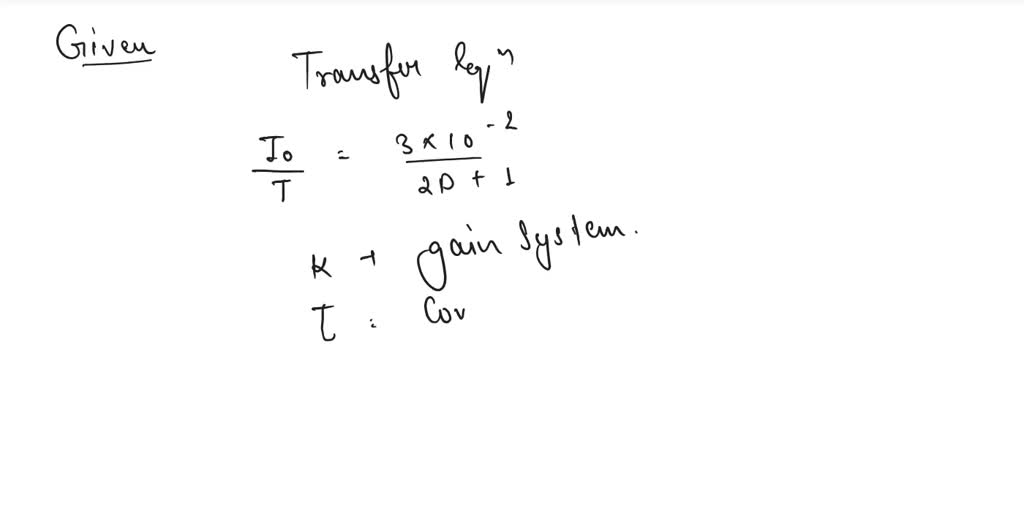 Given
Transfer eqⁿ
I₀/T = 3 × 10⁻²/2D + 1
K → gain system.
τ : Cov